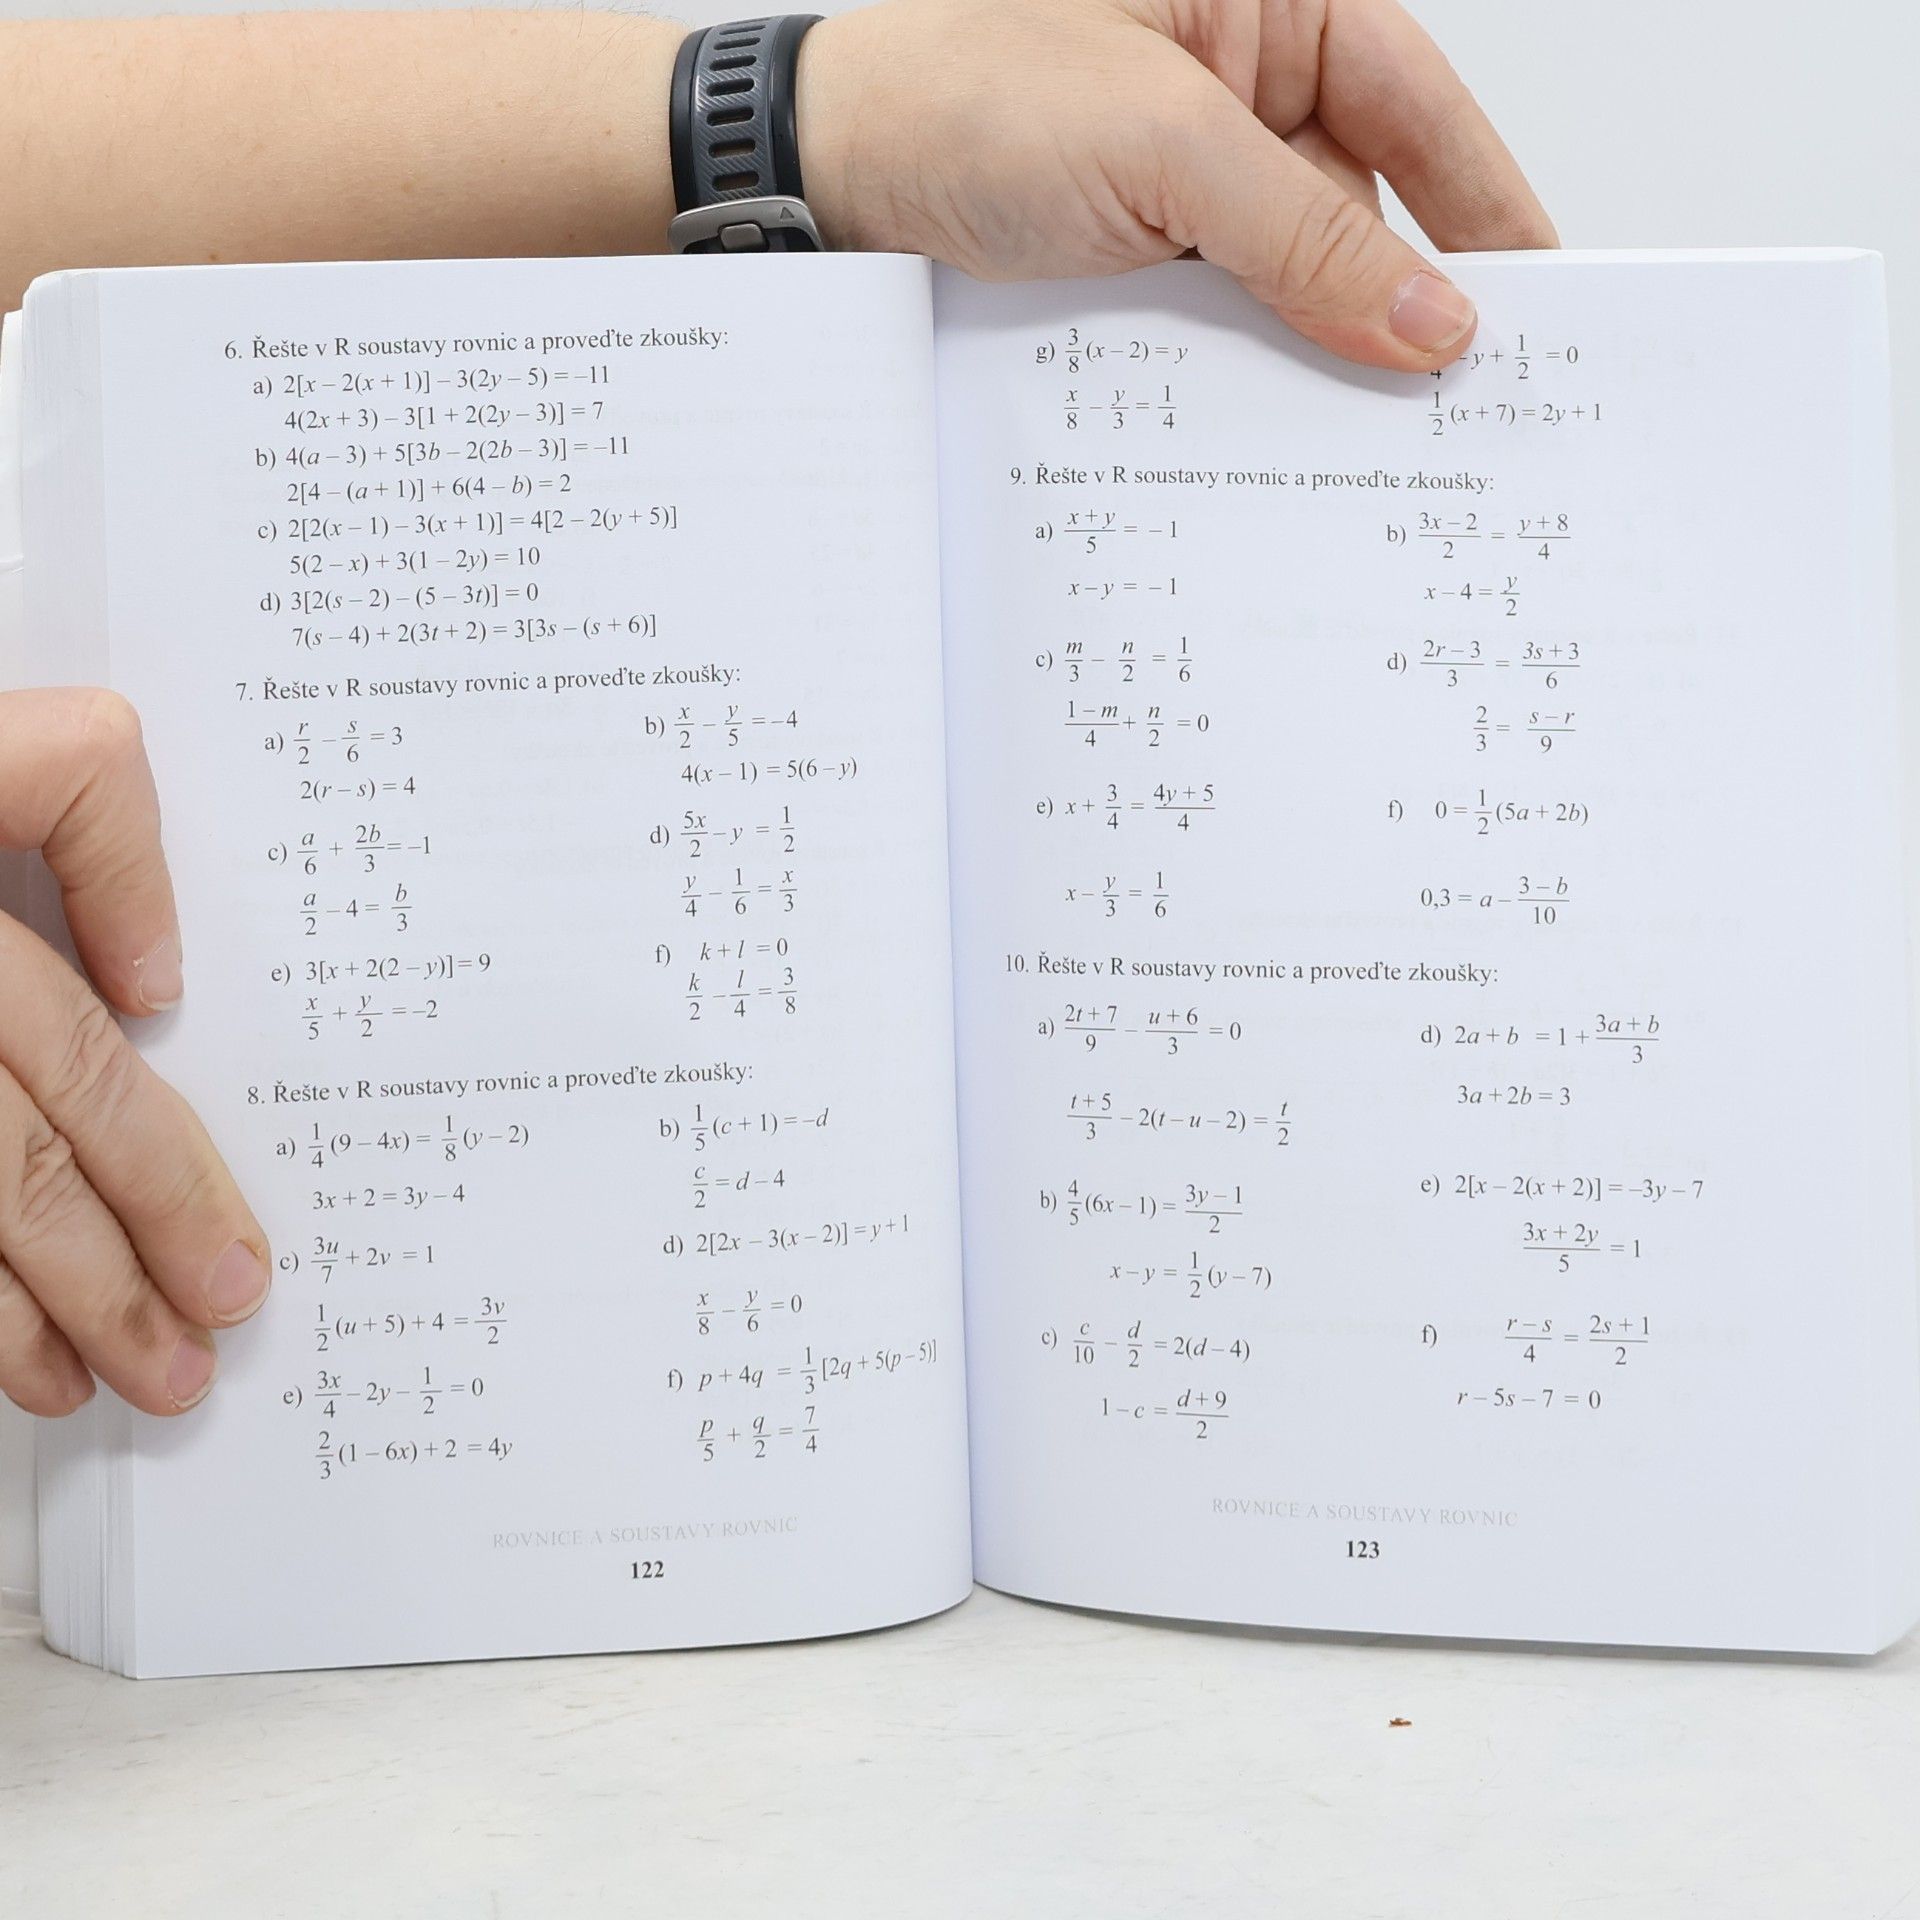 6. Řešte v R soustavy rovnic a proveďte zkoušky:
a) 2[x – 2(x + 1)] – 3(2y – 5) = –11
4(2x + 3) – 3[1 + 2(2y – 3)] = 7
b) 4(a – 3) + 5[3b – 2(2b – 3)] = –11
2[4 – (a + 1)] + 6(4 – b) = 2
c) 2[2(x – 1) – 3(x + 1)] = 4[2 – 2(y + 5)]
5(2 – x) + 3(1 – 2y) = 10
d) 3[2(s – 2) – (5 – 3t)] = 0
7(s – 4) + 2(3t + 2) = 3[3s – (s + 6)]
7. Řešte v R soustavy rovnic a proveďte zkoušky:
a) r/2 – s/6 = 3
2(r – s) = 4
b) x/2 – y/5 = –4
4(x – 1) = 5(6 – y)
c) a/6 + 2b/3 = –1
a/2 – 4 = b/3
d) 5x/2 – y = 1/2
y/4 – 1/6 = x/3
e) 3[x + 2(2 – y)] = 9
x/5 + y/2 = –2
f) k + l = 0
k/2 – l/4 = 3/8
8. Řešte v R soustavy rovnic a proveďte zkoušky:
a) 1/4 (9 – 4x) = 1/8 (y – 2)
3x + 2 = 3y – 4
b) 1/5 (c + 1) = –d
c/2 = d – 4
c) 3u/7 + 2v = 1
1/2 (u + 5) + 4 = 3v/2
d) 2[2x – 3(x – 2)] = y + 1
x/8 – y/6 = 0
e) 3x/4 – 2y – 1/2 = 0
2/3 (1 – 6x) + 2 = 4y
f) p + 4q = 1/3 [2q + 5(p – 5)]
p/5 + q/2 = 7/4
ROVNICE A SOUSTAVY ROVNIC
122
g) 3/8 (x – 2) = y
x/8 – y/3 = 1/4
– y + 1/2 = 0
1/2 (x + 7) = 2y + 1
9. Řešte v R soustavy rovnic a proveďte zkoušky:
a) (x + y)/5 = – 1
x – y = – 1
b) (3x – 2)/2 = (y + 8)/4
x – 4 = y/2
c) m/3 – n/2 = 1/6
(1 – m)/4 + n/2 = 0
d) (2r – 3)/3 = (3s + 3)/6
2/3 = (s – r)/9
e) x + 3/4 = (4y + 5)/4
x – y/3 = 1/6
f) 0 = 1/2 (5a + 2b)
0,3 = a – (3 – b)/10
10. Řešte v R soustavy rovnic a proveďte zkoušky:
a) (2t + 7)/9 – (u + 6)/3 = 0
(t + 5)/3 – 2(t – u – 2) = t/2
d) 2a + b = 1 + (3a + b)/3
3a + 2b = 3
b) 4/5 (6x – 1) = (3y – 1)/2
x – y = 1/2 (y – 7)
e) 2[x – 2(x + 2)] = –3y – 7
(3x + 2y)/5 = 1
c) c/10 – d/2 = 2(d – 4)
1 – c = (d + 9)/2
f) (r – s)/4 = (2s + 1)/2
r – 5s – 7 = 0
ROVNICE A SOUSTAVY ROVNIC
123